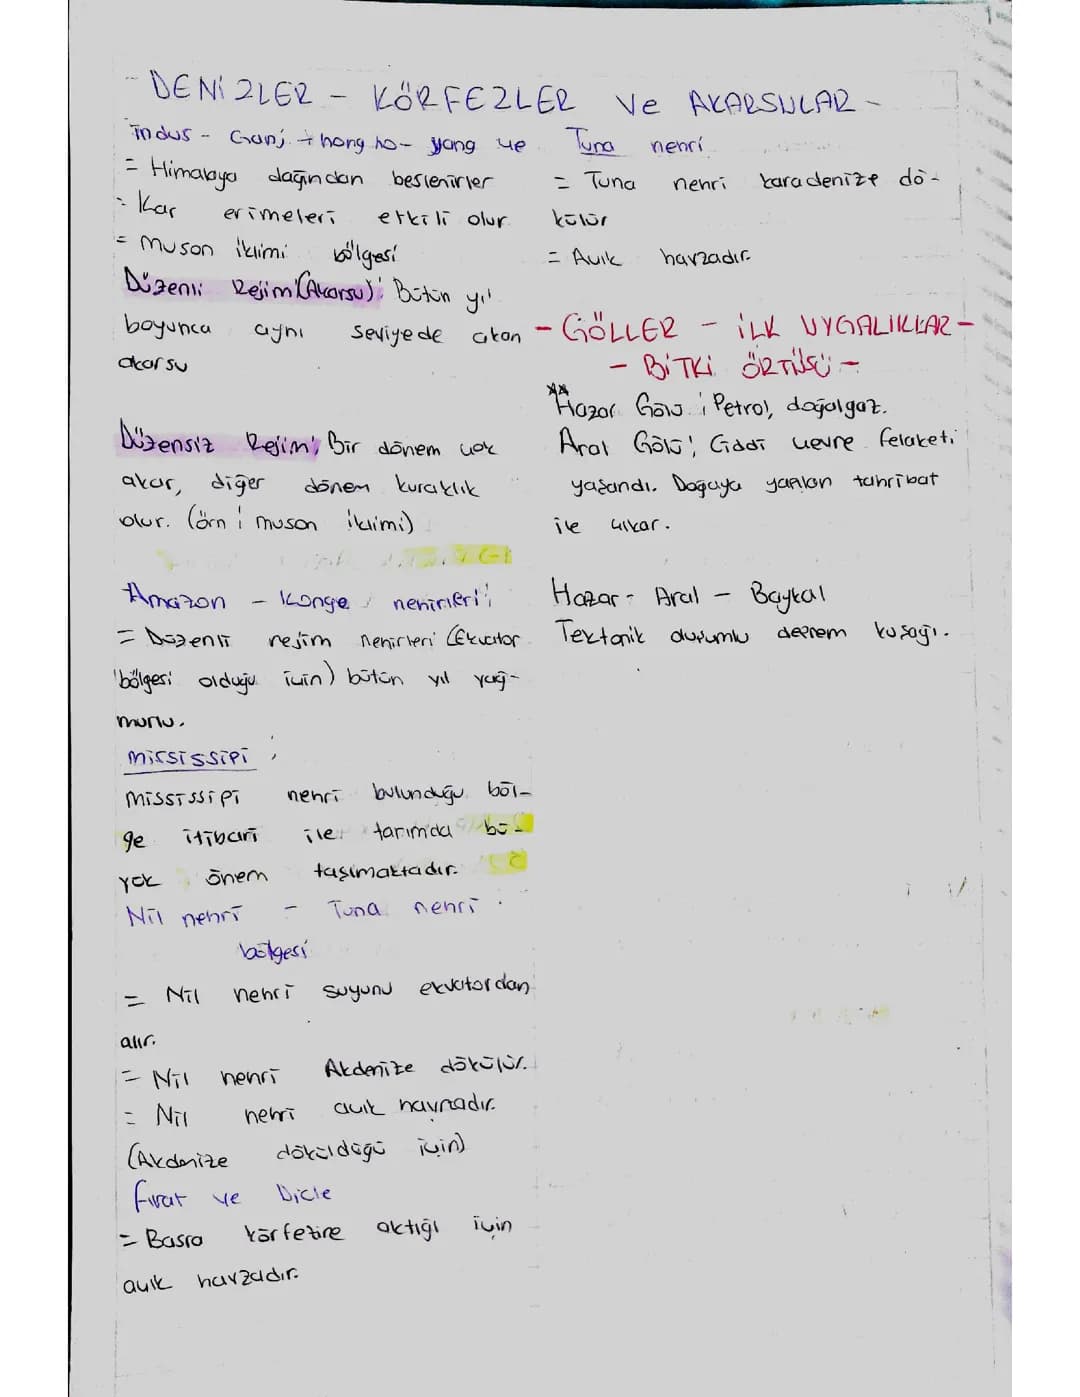 - DENİZLER - KÖRFEZLER ve AKARSULAR -
İndus - Ganj - hong ho - yang ue
= Himalaya dağından beslenirler
= Kar erimeleri etkili olur
= Muson iklimi bölgesi
Düzenli Rejim (Akarsu): Bütün yıl
boyunca aynı seviyede akan
akarsu
Düzensiz Rejim; Bir dönem çok
akar, diğer dönem kuraklık
olur. (örn; muson iklimi)
Amazon - Kongo nehirleri;
= Düzenli rejim nehirleri (Ekvator
bölgesi olduğu için) bütün yıl yağ-
murlu.
Mississipi;
Mississipi nehri bulunduğu böl-
ge itibari ile tarımda bü-
yük önem taşımaktadır.
Nil nehri - Tuna nehri
bölgesi
= Nil nehri suyunu ekvatordan
alır.
= Nil nehri Akdenize dökülür.
= Nil nehri açık havzadır.
(Akdenize döküldüğü için)
Fırat ve Dicle
= Basra körfezine aktığı için
açık havzadır.
Tuna nehri
= Tuna nehri karadenize dö-
külür
= Açık havzadır.
- GÖLLER - İLK UYGALIKLAR -
- BİTKİ ÖRTÜSÜ -
Hazar Gölü; Petrol, doğalgaz.
Aral Gölü; Ciddi çevre felaketi
yaşandı. Doğaya yapılan tahribat
ile çıkar.
Hazar - Aral - Baykal
Tektonik durumlu deprem kuşağı.